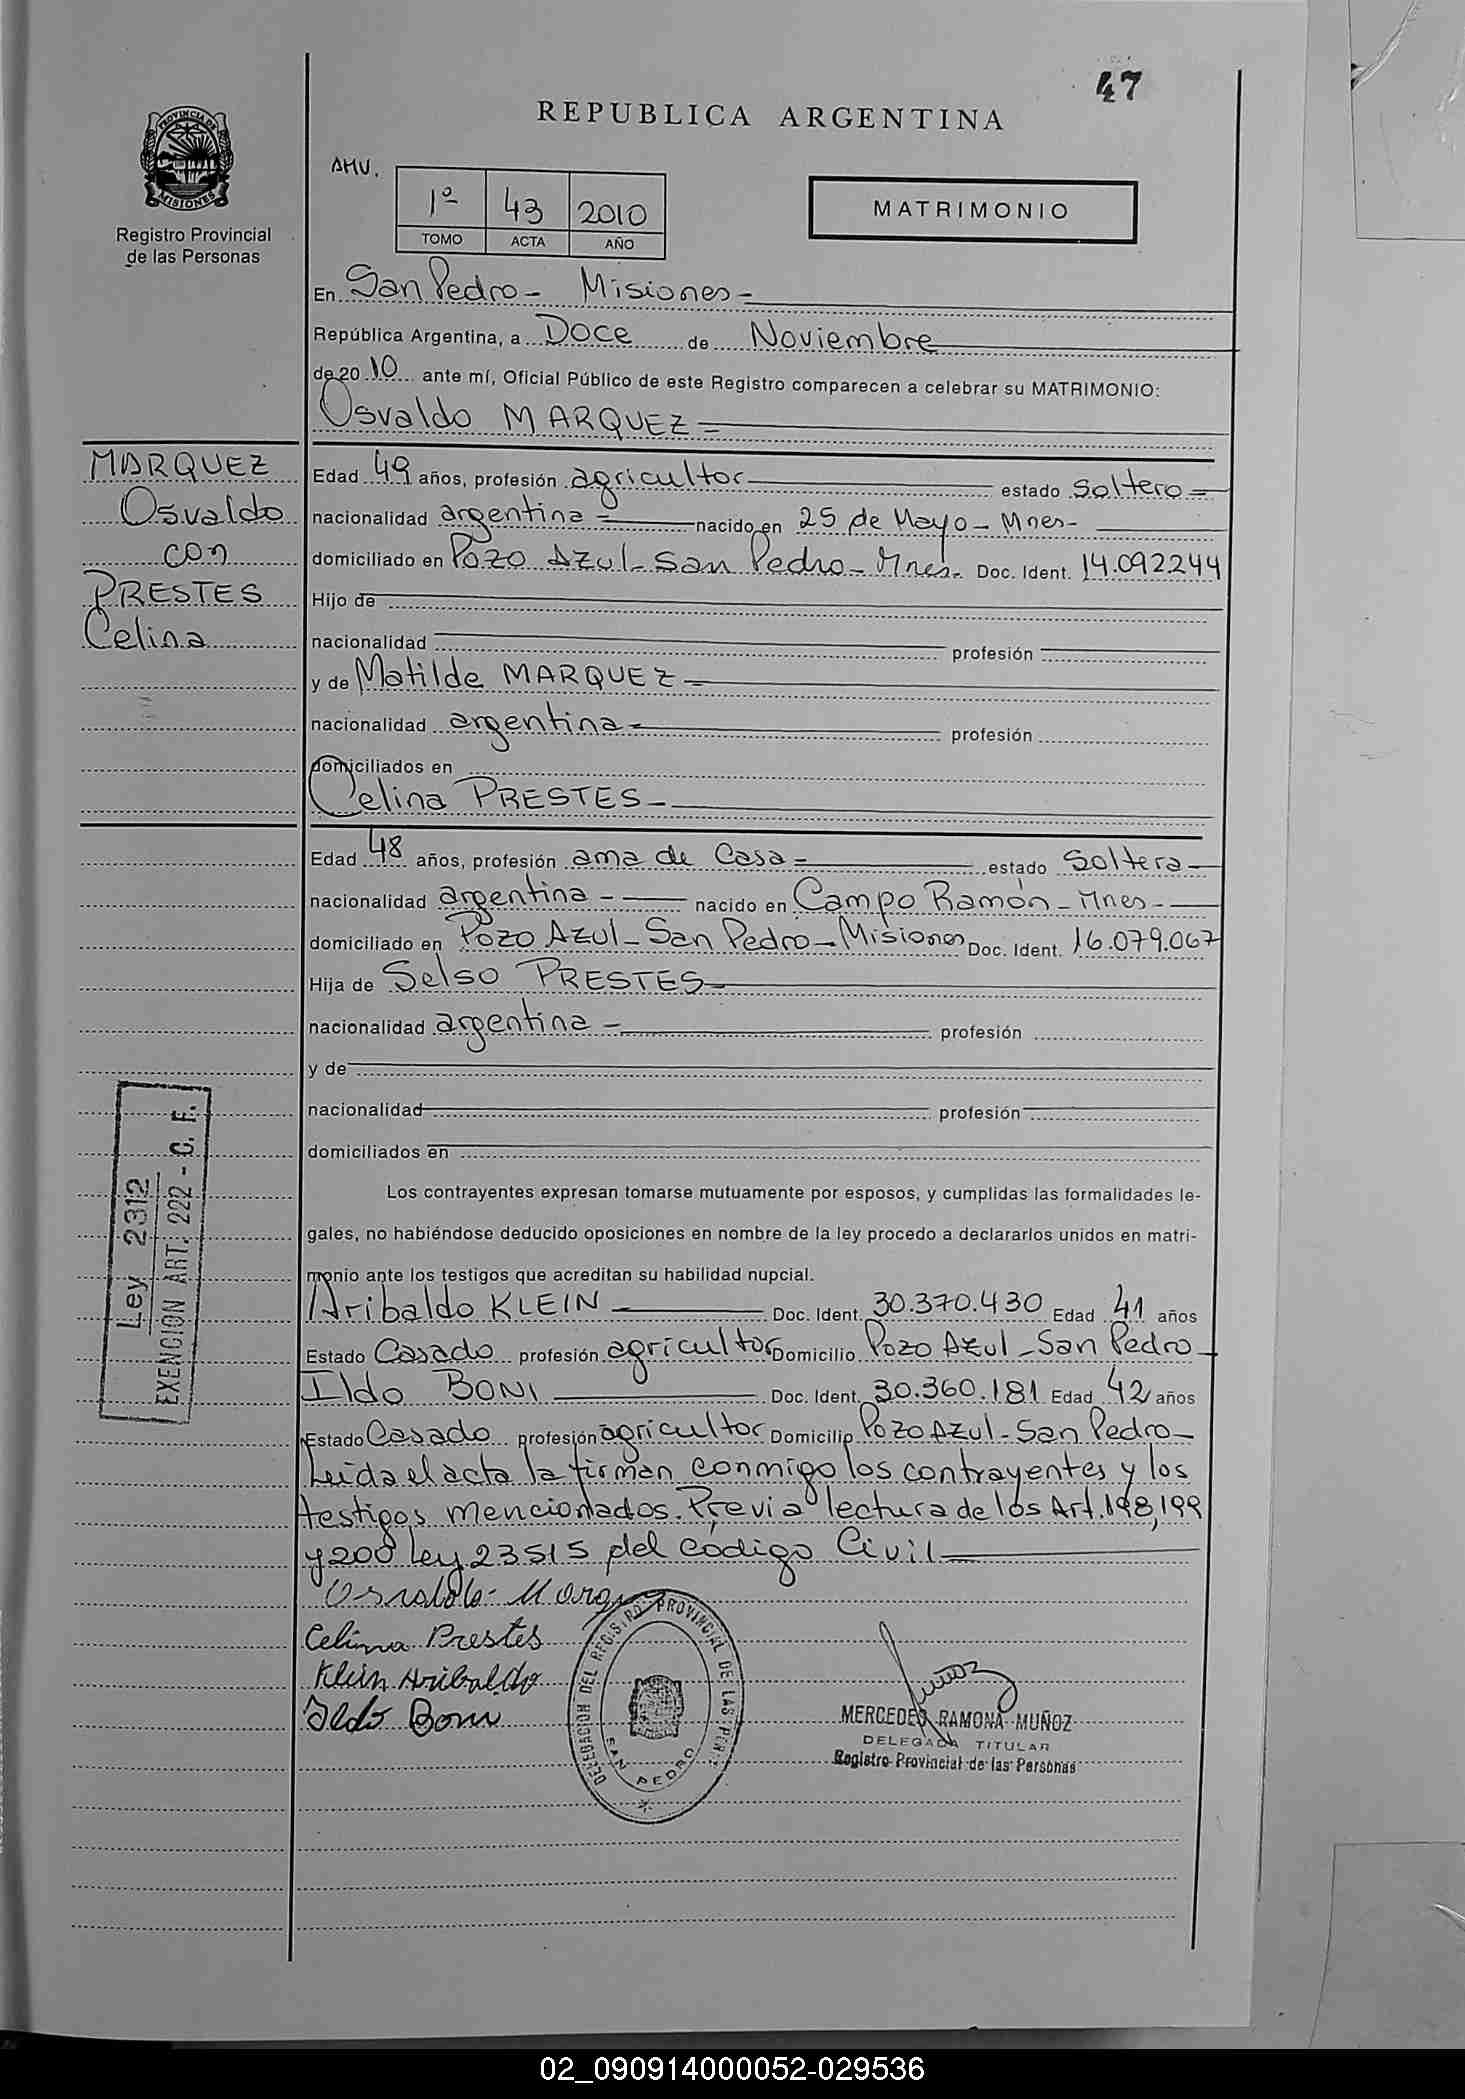 47
REPUBLICA ARGENTINA
PROVINCIA DE
MISIONES
Registro Provincial
de las Personas
AMU.
1º 43 2010
TOMO ACTA AÑO
MATRIMONIO
En San Pedro - Misiones -
República Argentina, a Doce de Noviembre
de 20 10 ante mí, Oficial Público de este Registro comparecen a celebrar su MATRIMONIO:
Osvaldo MARQUEZ =
MARQUEZ
Osvaldo
con
PRESTES
Celina
Edad 49 años, profesión agricultor estado soltero =
nacionalidad argentina = nacido en 25 de Mayo - Mnes -
domiciliado en Pozo Azul - San Pedro - Mnes. Doc. Ident. 14.092244
Hijo de
nacionalidad profesión
y de Matilde MARQUEZ =
nacionalidad argentina - profesión
domiciliados en
Celina PRESTES -
Edad 48 años, profesión ama de Casa = estado soltera -
nacionalidad argentina - nacido en Campo Ramón - Mnes -
domiciliado en Pozo Azul - San Pedro - Misiones Doc. Ident. 16.079.067
Hija de Selso PRESTES -
nacionalidad argentina - profesión
y de
nacionalidad profesión
domiciliados en
Ley 2312
EXENCION ART. 222 - C. F.
Los contrayentes expresan tomarse mutuamente por esposos, y cumplidas las formalidades le-
gales, no habiéndose deducido oposiciones en nombre de la ley procedo a declararlos unidos en matri-
monio ante los testigos que acreditan su habilidad nupcial.
Aribaldo KLEIN Doc. Ident. 30.370.430 Edad 41 años
Estado Casado profesión agricultor Domicilio Pozo Azul - San Pedro -
Ildo BONI Doc. Ident. 30.360.181 Edad 42 años
Estado Casado profesión agricultor Domicilio Pozo Azul - San Pedro -
Leida el acta la firman conmigo los contrayentes y los
testigos mencionados. Previa lectura de los Art. 198, 199
y 200 ley 23515 del código Civil
Osvaldo Marquez
Celina Prestes
Klein Aribaldo
Ildo Boni
DELEGACION DEL REGISTRO PROVINCIAL DE LAS PER.
SAN PEDRO
MERCEDES RAMONA MUÑOZ
DELEGADA TITULAR
Registro Provincial de las Personas
02_090914000052-029536